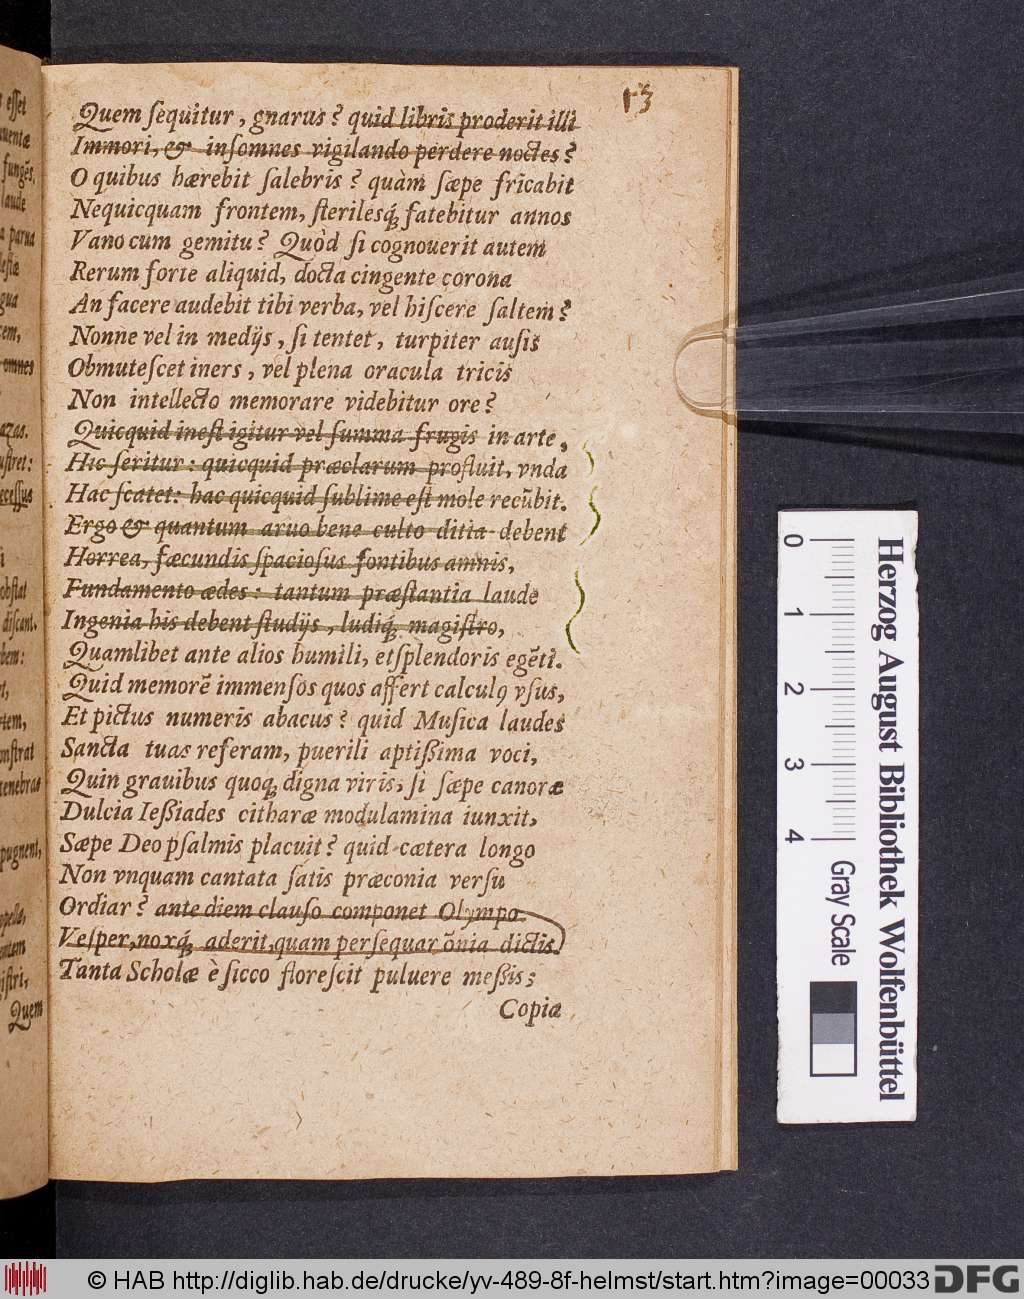 13
Quem ſequitur, gnarus? quid libris proderit illi
Immori, & inſomnes vigilando perdere noctes?
O quibus hærebit ſalebris? quàm ſæpe fricabit
Nequicquam frontem, ſterilesq́; fatebitur annos
Vano cum gemitu? Quòd ſi cognouerit autem
Rerum forte aliquid, docta cingente corona
An facere audebit tibi verba, vel hiſcere ſaltem?
Nonne vel in medijs, ſi tentet, turpiter auſis
Obmuteſcet iners, vel plena oracula tricis
Non intellecto memorare videbitur ore?
Quicquid ineſt igitur vel ſumma frugis in arte,
Hic ſeritur: quicquid præclarum profluit, vnda
Hac ſcatet: hac quicquid ſublime eſt mole recũbit.
Ergo & quantum aruo bene culto ditia debent
Horrea, fæcundis ſpacioſus fontibus amnis,
Fundamento ædes: tantum præſtantia laude
Ingenia his debent ſtudijs, ludiq́; magiſtro,
Quamlibet ante alios humili, etſplendoris egẽti.
Quid memorẽ immenſos quos affert calculꝰ vſus,
Et pictus numeris abacus? quid Muſica laudes
Sancta tuas referam, puerili aptißima voci,
Quin grauibus quoq; digna viris, ſi ſæpe canoræ
Dulcia Ießiades citharæ modulamina iunxit,
Sæpe Deo pſalmis placuit? quid cætera longo
Non vnquam cantata ſatis præconia verſu
Ordiar? ante diem clauſo componet Olympo
Veſper, noxq́; aderit, quam perſequar õnia dictis.
Tanta Scholæ è ſicco floreſcit puluere meßis;
Copiæ
Quem
Herzog August Bibliothek Wolfenbüttel
0 1 2 3 4
Gray Scale
© HAB http://diglib.hab.de/drucke/yv-489-8f-helmst/start.htm?image=00033
DFG